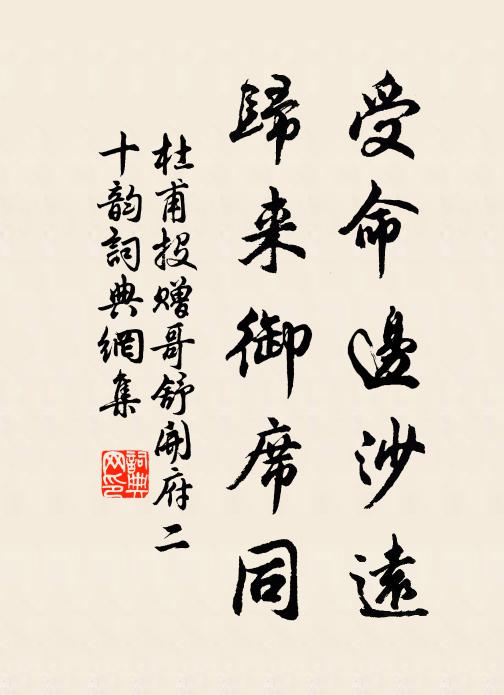 受命邊沙遠
歸来御席同
杜甫投赠哥舒開府二
十韵詞典網集
詞典
网印